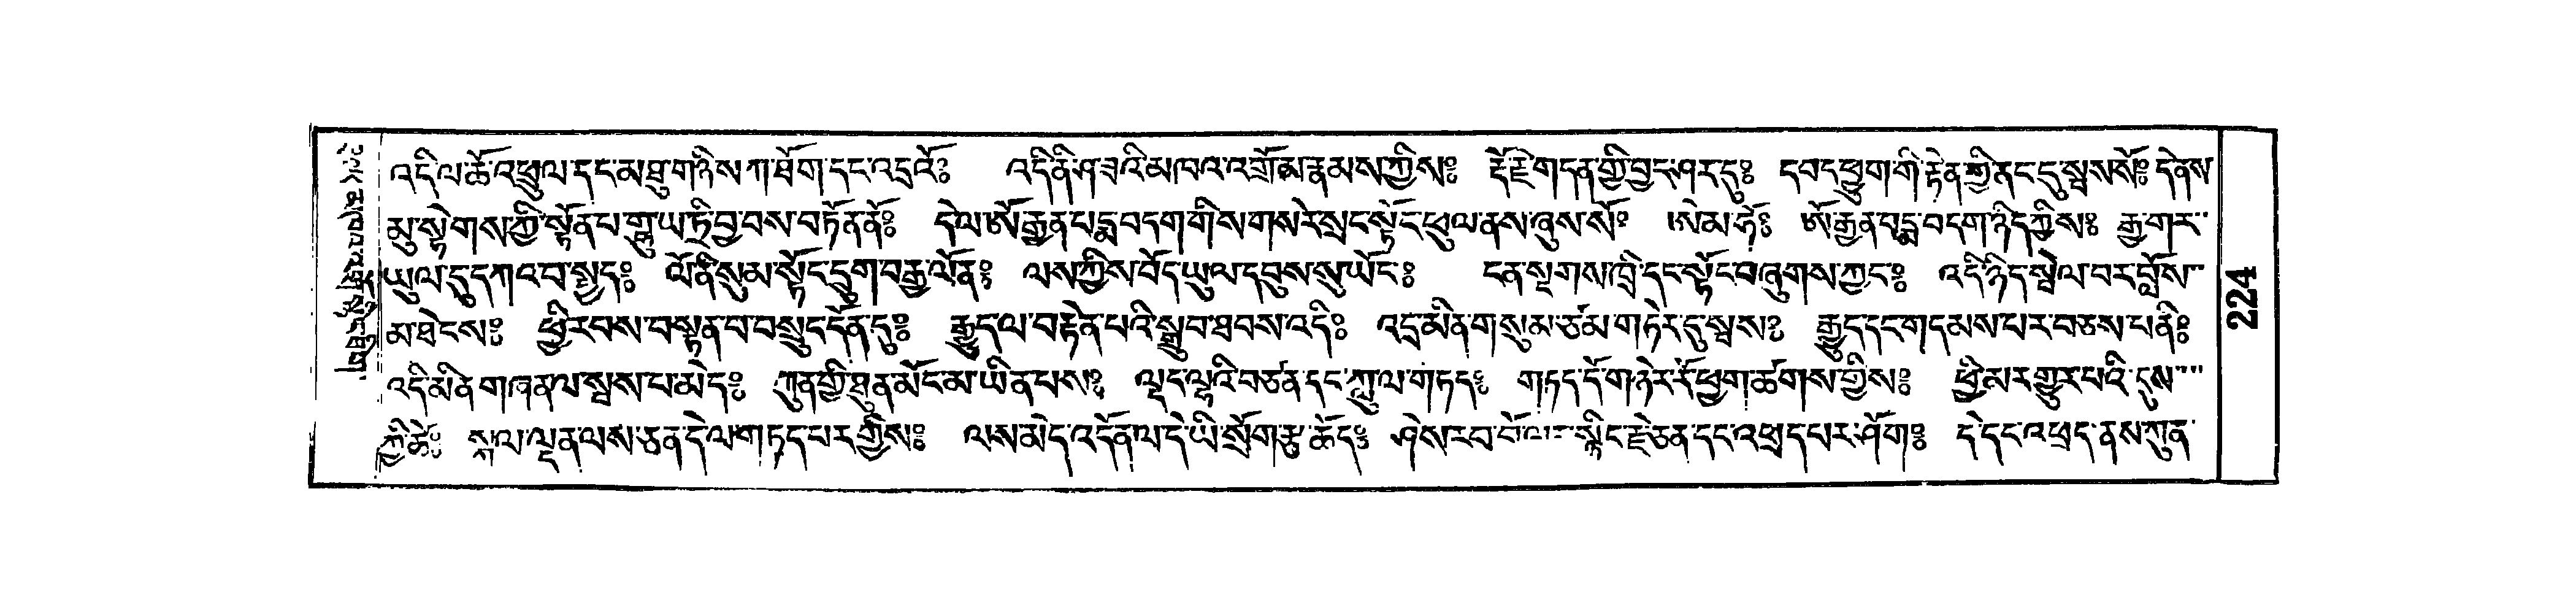 འདི་ལ་ཆོ་འཕྲུལ་དང་མཐུ་གཉིས་ཀ་ཐོག་དང་འདྲའོ༔ འདི་ནི་ཤ་ཟའི་མཁའ་འགྲོ་མ་རྣམས་ཀྱིས༔ རྡོ་རྗེ་གདན་གྱི་བྱང་ཤར་དུ༔ དབང་ཕྱུག་གི་རྟེན་ཀྱི་ནང་དུ་སྦས་སོ༔ དེ་ནས
མུ་སྟེགས་ཀྱི་སྟོན་པ་གླུ་ཡ་ཏྲི་བྱ་བས་བཏོན་ནོ༔ དེ་ལ་ཨོ་རྒྱན་པདྨ་བདག་གིས་གསེར་སྲང་སྟོང་ཕུལ་ནས་ཞུས་སོ༔ ཨེ་མ་ཧོ༔ ཨོ་རྒྱན་པདྨ་བདག་ཉིད་ཀྱིས༔ རྒྱ་གར
ཡུལ་དུ་དཀའ་བ་སྤྱད༔ ལོ་ནི་སུམ་སྟོང་དྲུག་བརྒྱ་ལོན༔ ལས་ཀྱིས་བོད་ཡུལ་དབུས་སུ་ཡོང༔ ངན་སྔགས་ཁྲི་དང་སྟོང་བཞུགས་ཀྱང༔ འདི་ཉིད་སྤེལ་བར་བློས
མ་ཐེངས༔ ཕྱི་རབས་བསྟན་པ་བསྲུང་དོན་དུ༔ རྒྱུད་ལ་བརྟེན་པའི་སྒྲུབ་ཐབས་འདི༔ འདྲ་མིན་གསུམ་ཙམ་གཏེར་དུ་སྦས༔ རྒྱུད་དང་གདམས་པར་བཅས་པ་ནི༔
འདི་མིན་གཞན་ལ་སྦས་པ་མེད༔ ཀུན་གྱི་ཐུན་མོང་མ་ཡིན་པས༔ ལྟད་ལྷའི་བཙན་དང་ཀླུ་ལ་གཏད༔ གཏད་དོ་གཉེར་རོ་ཕྱག་ཚགས་གྱིས༔ ཕྱི་མ་རགྱུར་པའི་དུས
ཀྱི་ཚེ༔ སྐལ་ལྡན་ལས་ཅན་དེ་ལ་གཏད་པར་གྱིས༔ ལས་མེད་འདོན་ལ་དེ་ཡི་སྲོག་རྩ་ཆོད༔ ཤེས་རབ་སྙིང་རྗེ་ཅན་དང་འཕྲད་པར་ཤོག༔ དེ་དང་འཕྲད་ནས་ཀུན